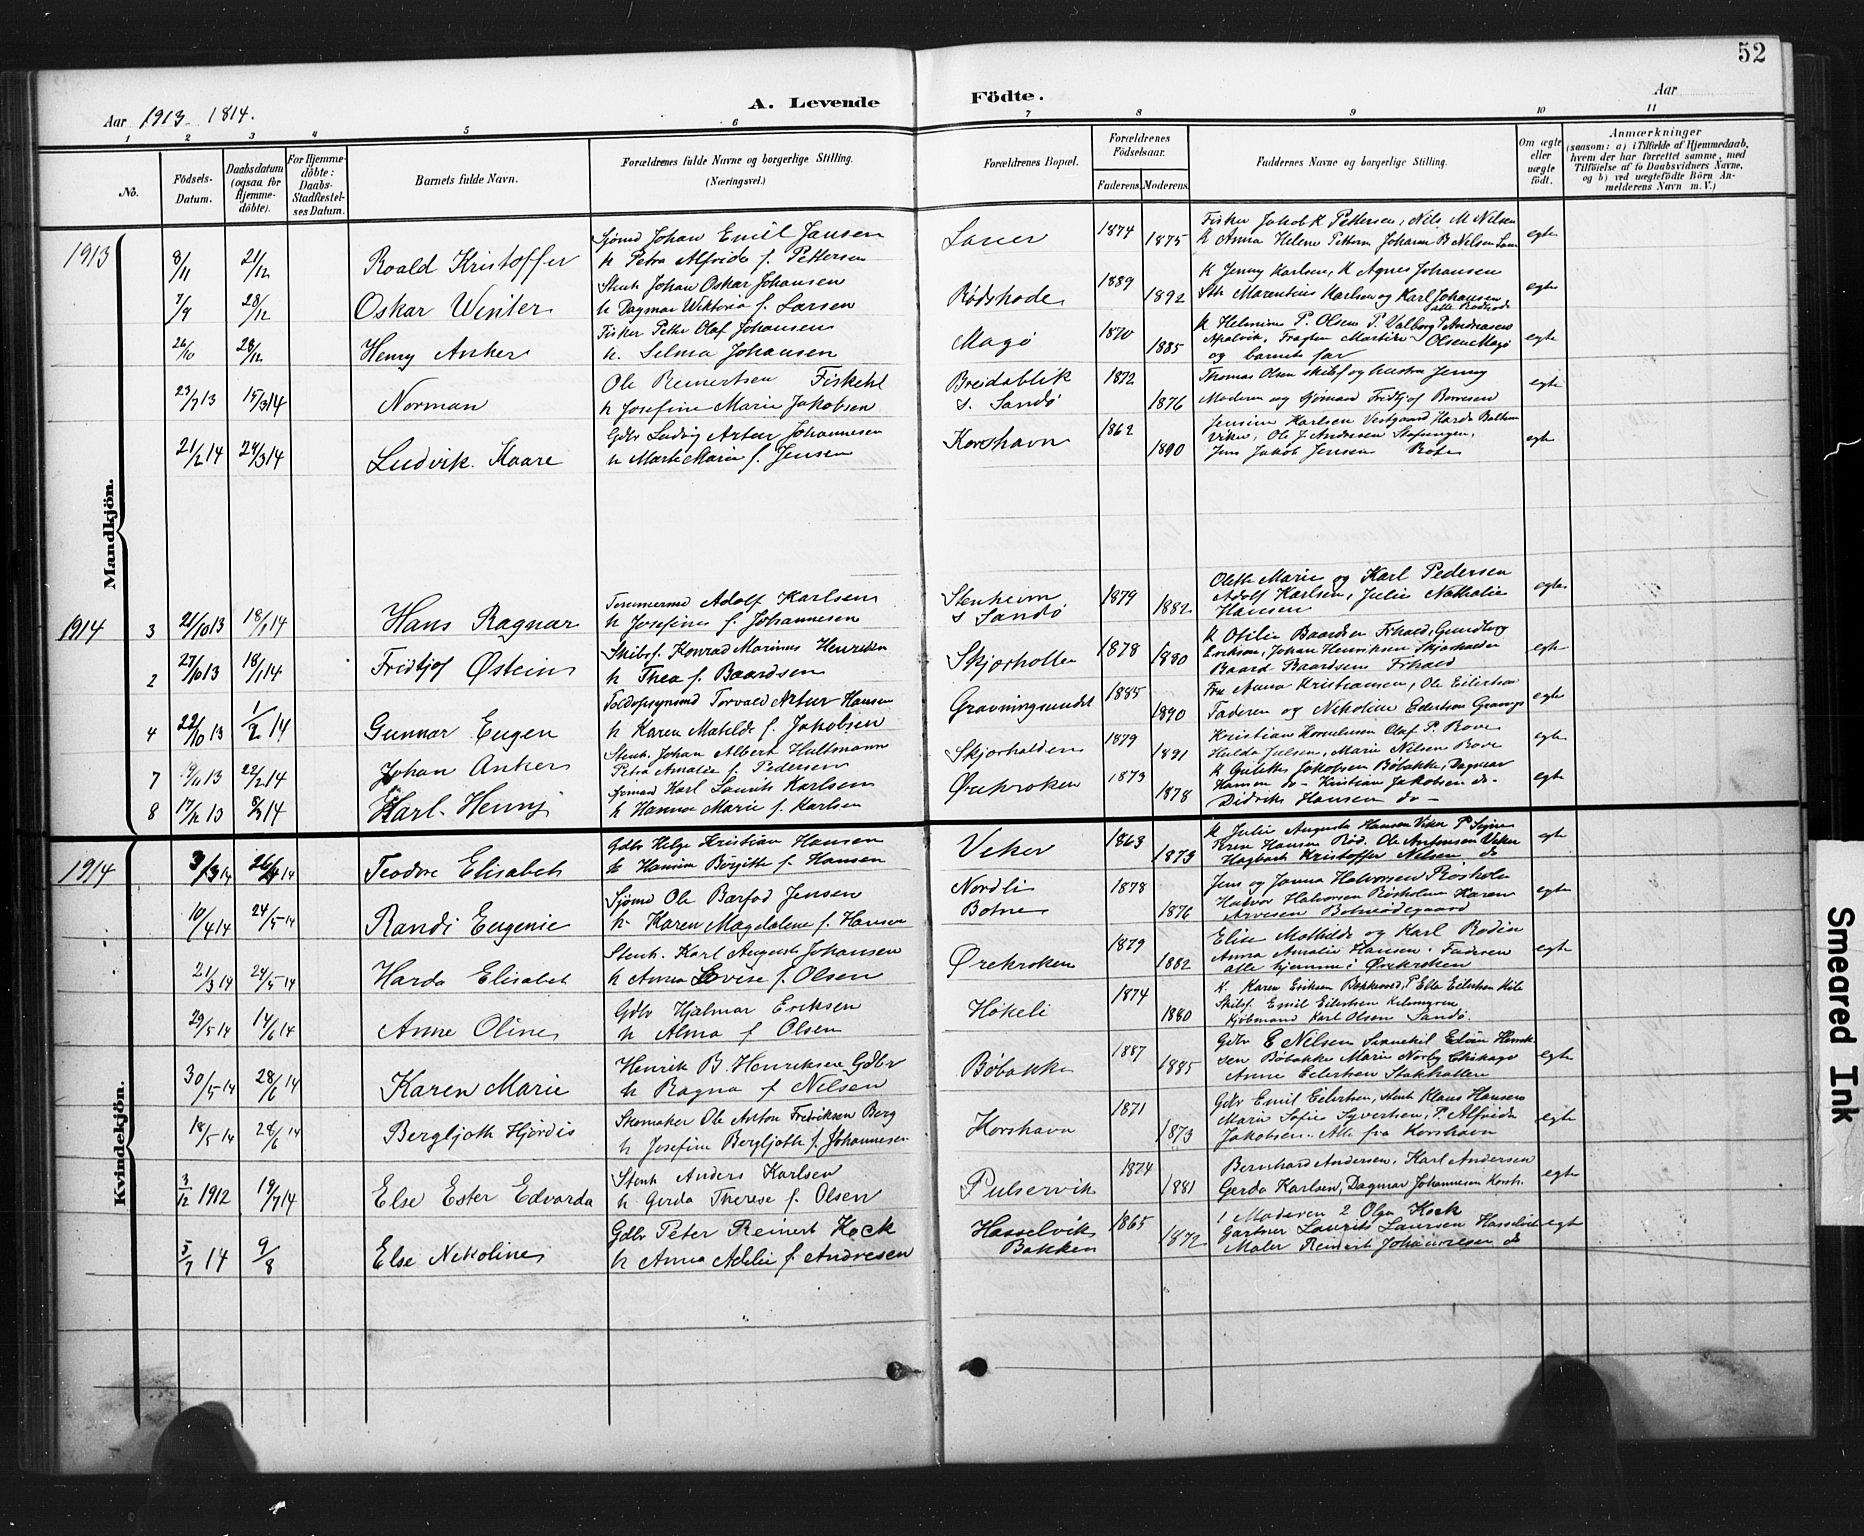 52
Aar 1913-1814.
A. Levende Födte.
Aar
1 2 3 4 5 6 7 8 9 10 11
No.
Födsels-Datum.
Daabsdatum (ogsaa for Hjemme-döbte).
For Hjemme-döbte: Daabs-Stadfæstel-ses Datum.
Barnets fulde Navn.
Forældrenes fulde Navne og borgerlige Stilling.
(Næringsvei.)
Forældrenes Bopæl.
Forældrenes Födselsaar.
Faderens. Moderens.
Faddernes Navne og borgerlige Stilling.
Om ægte eller uægte födt.
Anmærkninger
(saasom: a) i Tilfælde af Hjemmedaab,
hvem der har forrettet samme, med
Tilföielse af to Daabsvidners Navne,
og b) ved uægtefödte Börn An-
melderens Navn m. V.)
Mandkjön.
1913 8/11 21/12 Roald Kristoffer
Sjømd Johan Emil Jansen
h Petra Alfride f. Pettersen
Lauer 1874 1875
Fisker Jakob K Pettersen, Nils M Nilsen
K Anna Helene Johanne B Nelsen
egte
7/9 28/12 Oskar Winter
Stenh Johan Oskar Johansen
h Dagmar Wiktoria f. Larsen
Rødshode 1889 1892
K Jenny Karlsen, K Agnes Johansen
Sth Marentius Karlsen og Karl Johansen
alle Rødshode
egte
26/10 28/12 Henry Anker
Fisker Peter Olaf Johansen
h. Selma Johansen
Magö 1870 1885
K Helmine P. Olsen P. Valborg
Apalvik, Martin Olsen Magö
og barnets far
egte
23/7 13 15/3 14 Norman
Ole Reinertsen Fiskehl
h Josefine Marie Jakobsen
Breidablik
s. Sandø 1872 1876
Thomas Olsen skibsf og hustru Jenny
Moderen og sjømand Fridtjof Borresen
egte
21/2 14 24/3 14 Ludvik Kaare
Gdbr Ludvig Artur Johannesen
h Marte Marie f. Jensen
Korshavn 1862 1890
Jensine Karlsen Vestgaard Harda
Viker, Ole J. Andresen
Jens Jakob Jensen
egte
1914 3 21/10 13 18/1 14 Hans Ragnar
Tømmermd Adolf Karlsen
h Josefine f. Johannesen
Stenheim
s Sandø 1879 1882
Olette Marie og Karl Pedersen
Adolf Karlsen, Julie Nathalie
Hansen
egte
2 27/10 13 18/1 14 Fridtjof Østein
Skibsf. Konrad Marinus Henriksen
h Thea f. Baardsen
Skjærholten 1878 1880
K Otilie Baardsen
Eriksen, Johan Henriksen Skjærhalden
Baard Baardsen
egte
4 22/10 13 1/2 14 Gunnar Eugen
Toldopsynsmd Torvald Artur Hansen
h Karen Matilde f. Jakobsen
Gravningsundet 1885 1890
Fru Anna Kristiansen, Ole Eilertsen
Faderen og Nikoline Eilertsen
egte
7 22/2 14 Johan Anker
Stenh. Johan Albert Hultmann
Petra Amalie f. Pedersen
Skjærhalden 1879 1891
Kristian Kornelius Olaf P. Rove
Hulda Julsen, Marie Nilsen Rove
egte
8 17/12 13 8/3 14 Karl Henry
Karl Laurits Karlsen
h Hanna Marie f. Karlsen
Ørekroken 1873 1878
K Jakobsen Bøbakke, Dagmar
Hansen do - Kristian Jakobsen do-
Didrik Hansen do-
egte
Kvindekjön.
1914 3/3 14 26/4 14 Teodore Elisabet
Gdbr Helge Kristian Hansen
h Hansine Bergitte f. Hansen
Viker 1863 1873
K Julie Augusta Hansen Viker P Signe
Hansen Rød. Ole Antonsen Viker
Hagbart Kristoffer Nelsen do
egte
10/4 14 24/5 14 Randi Eugenie
Sjømd Ole Barfod Jensen
h. Karen Magdalene f. Hansen
Nordli
Botne 1878 1876
Jens og Janna Halvorsen Røsholm
Halvor Halvorsen Røsholm Karen
Arvesen Botnødegaard
egte
21/3 14 24/5 14 Harda Elisabet
Stenh. Karl August Johansen
h Anna Lovise f. Olsen
Ørekroken 1879 1882
Elise Mathilde og Karl Rodin
Anna Amalie Hansen. Faderen
alle hjemme i Ørekroken
egte
29/5 14 14/6 14 Anne Oline
Gdbr Hjalmar Eriksen
h Alma f Olsen
Høkeli 1874 1880
K. Karen Eriksen P Ella Eilertsen
Skibsf. Emil Eilertsen
Kjøbmand Karl Olsen Sandø.
30/5 14 28/6 14 Karen Marie
Henrik B. Henriksen Gdbr
h Ragna f Nilsen
Bøbakke 1887 1885
Gdbr E Nilsen Edvin Henrik-
sen Bøbakke Marie Norby
Anne Eilertsen
egte
18/5 14 28/6 14 Bergljoth Hjørdis
Skomaker Ole Anton Fredriksen Berg
h Josefine Bergljoth f. Johannesen
Korshavn 1871 1873
Gdbr Emil Eilertsen, stenh Klaus Hansen
Marie Sofie Syvertsen, P. Alfrida
Jakobsen. Alle fra Korshavn
egte
3/12 1912 19/7 14 Else Ester Edvarda
Stenh Anders Karlsen
h Gerda Therese f. Olsen
Pulservik 1874 1881
Bernhard Andersen, Karl Andersen
Gerda Karlsen, Dagmar Johannesen Korsh.
egte
5/7 14 9/8 Else Nikoline
Gdbr Peter Reinert Kock
h Anna Adilie f. Andresen
Hasselvik
Bakken 1865 1872
1 Moderen 2 Olga Kock
Gartner Laurits Laursen Hasselvik
Maler Reinert Johannesen do
egte
Smeared Ink